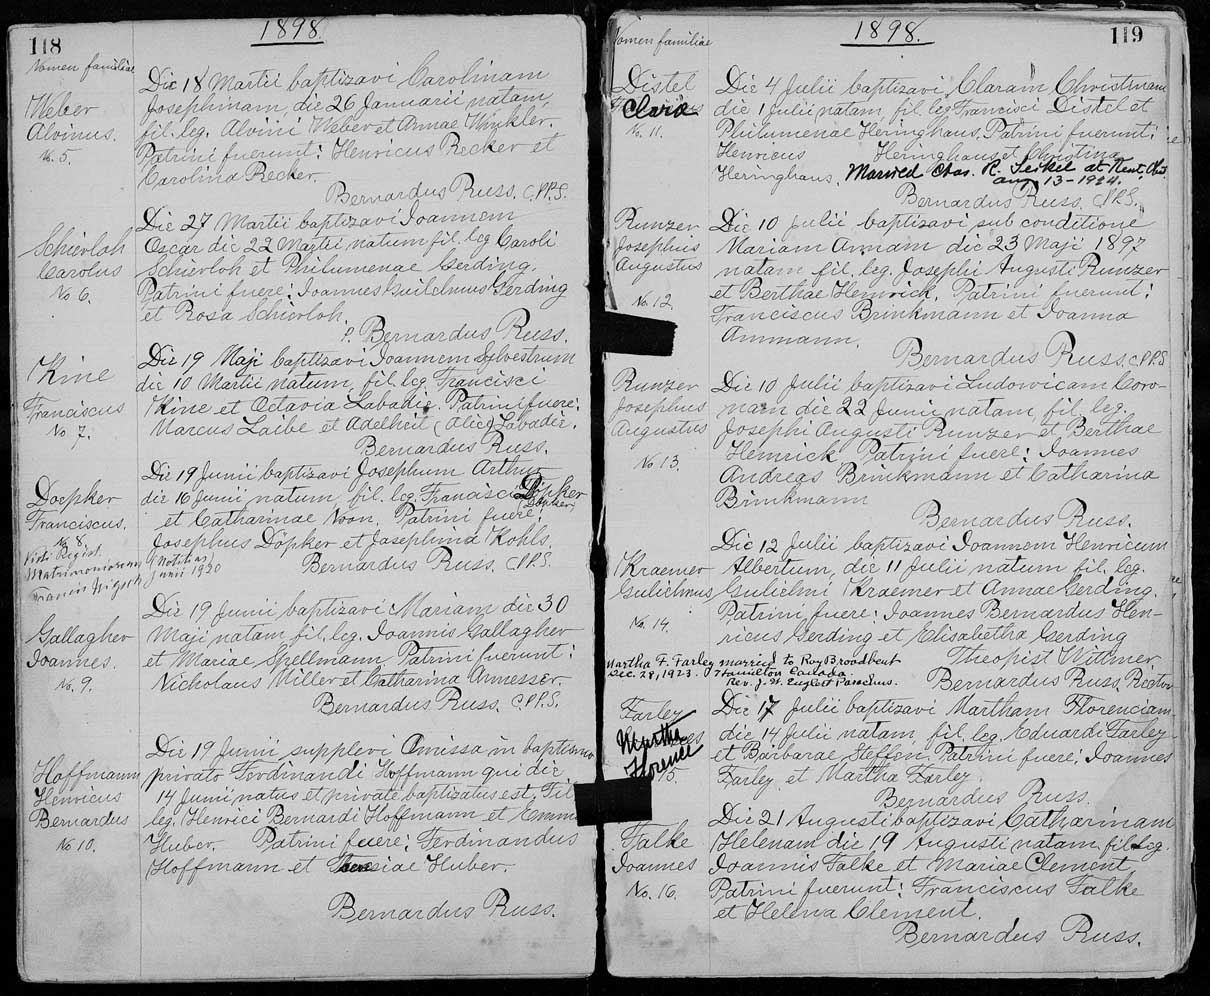 118
1898.
Nomen familiae
Weber
Aloinus.
No. 5.
Die 18 Martii baptizavi Carolinam
Josephinam, die 26 Januarii natam,
fil. leg. Alvini Weber et Annae Winkler.
Patrini fuerunt: Henricus Recker et
Carolina Recker
Bernardus Russ. C.PP.S.
Schierloh
Carolus
No 6.
Die 27 Martii baptizavi Joannem
Oscar die 22 Martii natum fil. leg Caroli
Schierloh et Philumenae Gerding.
Patrini fuere: Joannes Guilelmus Gerding
et Rosa Schierloh
P. Bernardus Russ.
Kine
Franciscus
No 7.
Die 19 Maji baptizavi Joannem Sylvestrum
die 10 Martii natum, fil. leg. Francisci
Kine et Octavia Labadie. Patrini fuere:
Marcus Laibe et Adelheit (Alice) Labadie.
Bernardus Russ.
Doepker
Franciscus.
No. 8.
Vide Regist.
Matrimoniorum
9 Notitias
Junii 1920
Die 19 Junii baptizavi Josephum Arthur
die 16 Junii natum, fil. leg. Francisci Döpker
(Döpker)
et Catharinae Noon. Patrini fuere:
Josephus Döpker et Josephina Kohls.
Bernardus Russ. C.PP.S.
Gallagher
Joannes.
No. 9.
Die 19 Junii baptizavi Mariam die 30
Maji natam, fil. leg. Joannis Gallagher
et Mariae Spellmann, Patrini fuerunt:
Nicholaus Miller et Catharina Annesser.
Bernardus Russ. C.PP.S.
Hoffmann
Henricus
Bernardus
No 10.
Die 19 Junii, supplevi Omissa in baptismo
privato Ferdinandi Hoffmann qui die
14 Junii natus et private baptizatus est, Fil
leg. Henrici Bernardi Hoffmann et Emma
Huber. Patrini fuere: Ferdinandus
Hoffmann et Huber.
Bernardus Russ.
1898.
119
Nomen familiae
Distel
Clara
No. 11.
Die 4 Julii baptizavi Claram Christinam
die 1 Julii natam, fil. leg Francisci Distel et
Philumenae Heringhaus. Patrini fuerunt:
Henricus Heringhaus et Christina
Heringhaus. Married Chas. R. Teikel at Kent, Ohio.
Aug 13-1924.
Bernardus Russ. C.PP.S.
Runzer
Josephus
Augustus
No. 12.
Die 10 Julii baptizavi sub conditione
Mariam Annam die 23 Maji 1897
natam fil. leg. Josephi Augusti Runzer
et Berthae Hemrick. Patrini fuerunt:
Franciscus Brinkmann et Joanna
Ammann.
Bernardus Russ. C.PP.S
Runzer
Josephus
Augustus
No. 13.
Die 10 Julii baptizavi Ludovicam Coro-
nam die 22 Junii natam, fil. leg.
Josephi Augusti Runzer et Berthae
Hemrick Patrini fuere: Joannes
Andreas Brinkmann et Catharina
Brinkmann
Bernardus Russ.
Kraemer
Gulielmus
No. 14.
Die 12 Julii baptizavi Joannem Henricum
Albertum, die 11 Julii natum, fil. leg.
Gulielmi Kraemer et Annae Gerding.
Patrini fuere: Joannes Bernardus Hen-
ricus Gerding et Elisabetha Gerding
Theopist Wittmer
Bernardus Russ, Rector
Martha F. Farley married to Roy Broadbent
Dec. 28, 1923. Hamilton Canada.
Rev. J. H. Englert Parochus.
Farley
Martha
Florence
15.
Die 17 Julii baptizavi Martham Florenciam
die 14 Julii natam, fil, leg. Eduardi Farley
et Barbarae Steffen, Patrini fuere, Joannes
Farley et Martha Farley.
Bernardus Russ.
Falke
Joannes
No. 16.
Die 21 Augusti baptizavi Catharinam
Helenam die 19 Augusti natam, fil. leg.
Joannis Falke et Mariae Clement
Patrini fuerunt: Franciscus Falke
et Helena Clement.
Bernardus Russ.